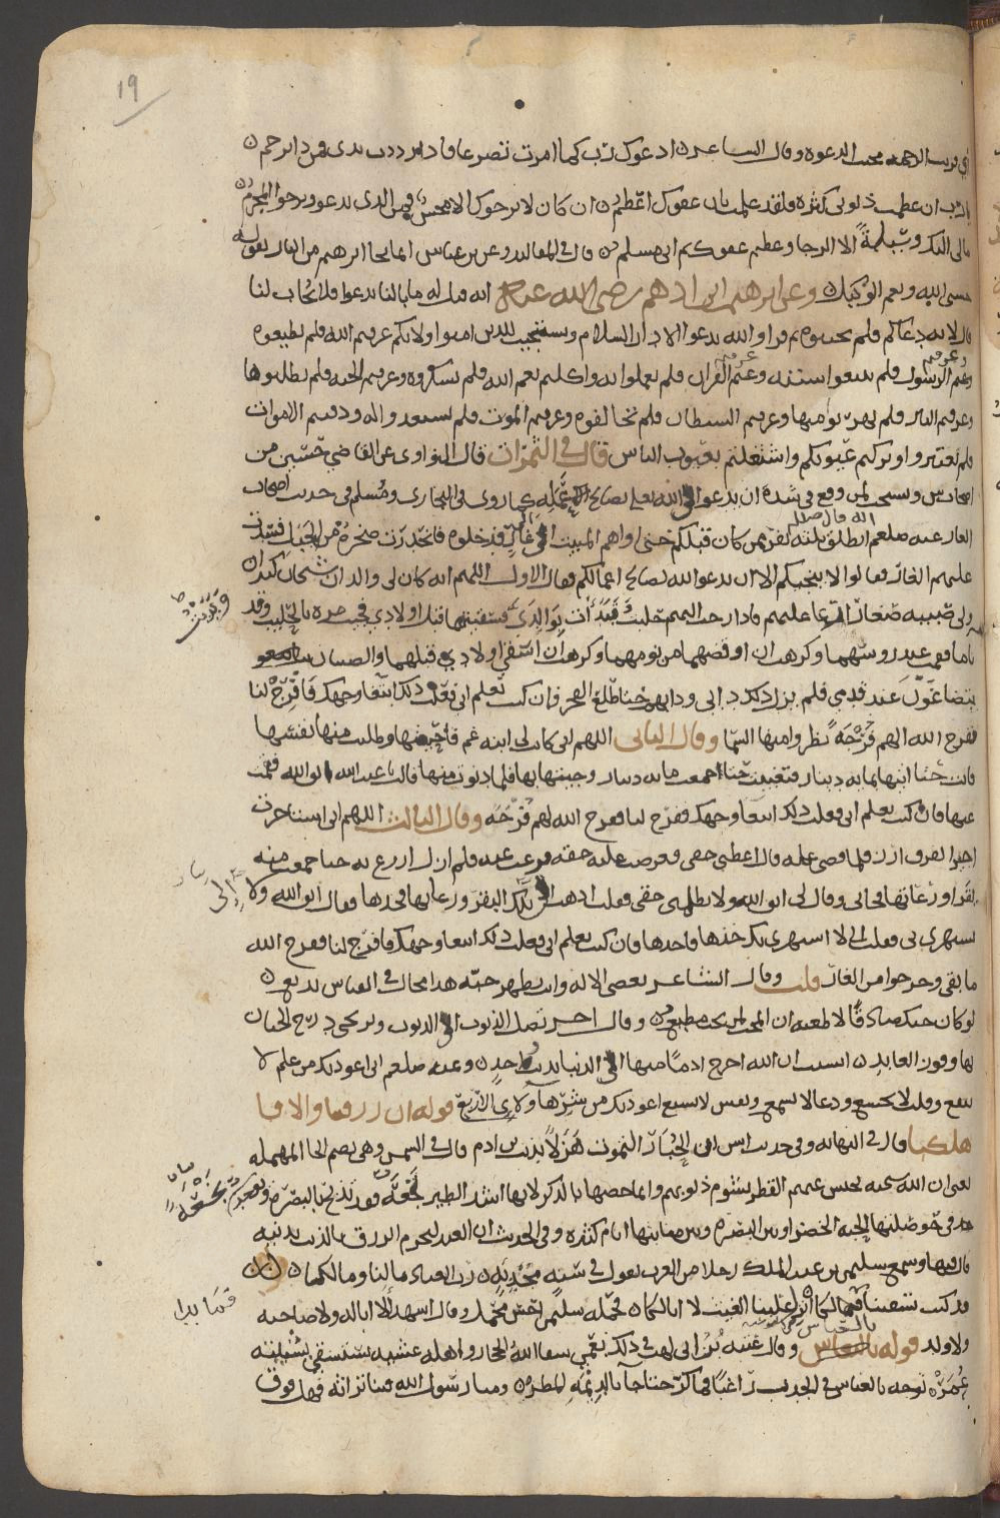 ١٩
اي قريب الرحمة مجيب الدعوة وقال الشاعر ادعوك رب كما امرت تضرعا فاذا رددت يدي فمن ذا يرحم
يا رب ان عظمت ذنوبي كثرة فلقد علمت بان عفوك اعظم ان كان لا يرجوك الا محسن فمن الذي يدعو ويرجوا المجرم
مالي اليك وسيلة الا الرجا وعظيم عفوك ثم اني مسلم قال في وعن بن عباس ابرهيم من النار بقوله
حسبي الله ونعم الوكيل وعن ابرهيم ابن ادهم رضي الله عنه انه قيل له ما بالنا ندعوا فلا يجاب لنا
قال لانه دعاكم فلم تجيبوه ثم قرا والله يدعوا الى دار السلام ويستجيب للذين امنوا ولانكم عرفتم الله فلم تطيعوه
وعرفتم الرسول فلم تتبعوا سنته وعرفتم القران فلم تعملوا به واكلتم نعم الله فلم تشكروه وعرفتم الجنة فلم تطلبوها
وعرفتم النار فلم تهربوا منها وعرفتم الشيطان فلم تخالفوه وعرفتم الموت فلم تستعدوا له ودفنتم الاموات
فلم تعتبروا وتركتم عيوبكم واشتغلتم بعيوب الناس قال في الثمرات قال النواوي عن القاضي حسين من
ويستحب لمن وقع في شدة ان يدعوا الله تعلى بصالح عمله كما روي في البخاري ومسلم في حديث اصحاب
الغار عنه صلعم انطلق ثلثة نفر ممن كان قبلكم حتى اواهم المبيت الى غار فدخلوه فانحدرت صخرة من الجبل فسدت
عليهم الغار فقالوا لا ينجيكم الا ان تدعوا الله بصالح اعمالكم فقال الاول اللهم انه كان لي والدان شيخان كبيران
ولي صبية صغار ارعا عليهم فاذا رحت اليهم حلبت فبدأت بوالدي فسقيتهما قبل اولادي فجيت مرة بالحليب وقد
ناما فقمت عند روسهما وكرهت ان اوقضهما من نومهما وكرهت ان اسقي اولادي قبلهما والصبيان
يتضاغون عند قدمي فلم يزل ذلك دابي ودابهم حتى طلع الفجر فان كنت تعلم اني فعلت ذلك ابتغا وجهك فافرج لنا
ففرج الله لهم فرجة نظروا منها السما وقال الثاني اللهم انه كانت لي ابنة عم فاحببتها وطلبت منها نفسها
فابت حتى اتيها بمايه دينار فتعبت حتى اجمعت مايه دينار وجيتها بها فلما دنوت منها قالت يا عبد الله اتق الله فقمت
عنها فان كنت تعلم اني فعلت ذلك ابتغا وجهك ففرج لنا ففرج الله لهم فرجة وقال الثالث اللهم اني استاجرت
اجيرا بفرق ارز فلما قضى عمله قال اعطني حقي فعرضت عليه حقه فرغب عنه فلم ازل ازرع به حتى جمعت منه
بقرا ورعاتها فجاني وقال لي اتق الله ولا تظلمني حقي فقلت اذهب الى تلك البقر ورعاتها فخذها فقال اتق الله ولا
تستهزي بي فقلت اني لا استهزي بك خذها فاخذها فان كنت تعلم اني فعلت ذلك ابتغا وجهك فافرج لنا ففرج الله
ما بقي وخرجوا من الغار قلت وقال الشاعر تعصي الاله وانت تظهر حبه هذا محال في القياس بديع
لو كان حبك صادقا لاطعته ان المحب لمن يحب مطيع وقال اخر تصل الذنوب الى الذنوب وترتجي درج الجنان
بها وفوز العابد انسيت ان الله اخرج ادما منها الى الدنيا بذنب واحد وعنه صلعم اني اعوذ بك من علم لا
ينفع وقلب لا يخشع ودعا لا يسمع ونفس لا تشبع اعوذ بك من شرها ولاي الاربع قوله
هلكنا قال في النهايه وفي حديث انس ان الحبارى لتموت هزلا بذنب بن ادم قال في الشمس وهي بضم الحا المهمله
يعني ان الله سبحانه يحبس عنهم القطر بشوم ذنوبهم وانما خصها بالذكر لانها ابعد الطير نجعة فربما تذبح بالبصرة
في حوصلتها الحبة الخضرا وبين البصرة وبين منابتها ايام كثيرة وفي الحديث ان العبد ليحرم الرزق بالذنب يذنبه
قال فيها وسمع سليمن بن عبد الملك رجلا من العرب يقول في سنة مجدبة رب العباد ما لنا وما لكا
قد كنت تسقينا فما بدا لكا انزل علينا الغيث لا ابا لكا فحمله سليمن احسن محمل وقال اشهد الا ابا له ولا صاحبة
ولا ولد قوله بالعباس وقال عتبة بن ابي لهب في ذلك بعمي سقا الله الحجاز واهله عشية يستسقي بشيبته
عمر توجه بالعباس في الجدب راغبا فما كر حتى جا بالديمة المطر ومنا رسول الله فينا تراثه فهل فوق